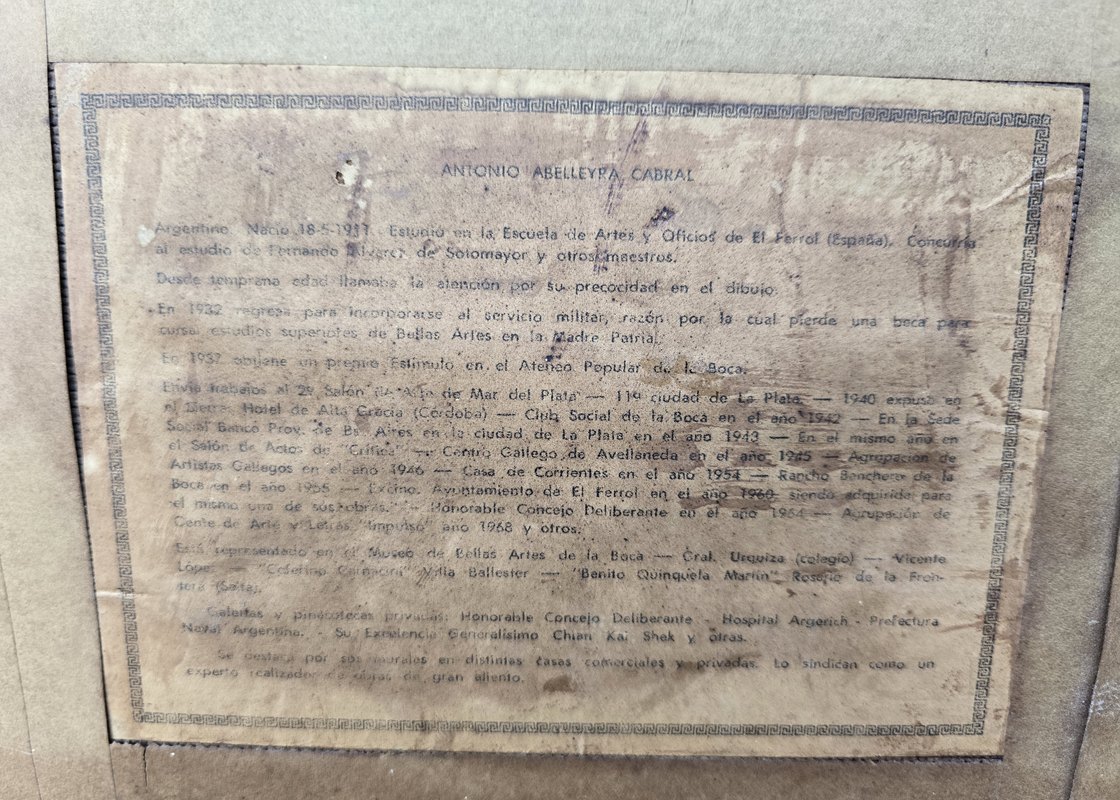 ANTONIO ABELLEYRA CABRAL
Argentino. Nació 18-5-1911. Estudió en la Escuela de Artes y Oficios de El Ferrol (España). Concurría
al estudio de Fernando Alvarez de Sotomayor y otros maestros.
Desde temprana edad llamaba la atención por su precocidad en el dibujo.
En 1932 regresa para incorporarse al servicio militar, razón por la cual pierde una beca para
cursar estudios superiores de Bellas Artes en la Madre Patria.
En 1937 obtiene un premio Estímulo en el Ateneo Popular de la Boca.
Envía trabajos al Salón de Arte de Mar del Plata — 11º ciudad de La Plata. — 1940 expuso en
el Sierras Hotel de Alta Gracia (Córdoba) — Club Social de la Boca en el año 1942 — En la Sede
Social Banco Prov. de Bs. Aires en la ciudad de La Plata en el año 1943 — En el mismo año en
el Salón de Actos de "Crítica" — Centro Gallego de Avellaneda en el año 1945 — Agrupación de
Artistas Gallegos en el año 1946 — Casa de Corrientes en el año 1954 — Rancho Banchero de la
Boca en el año 1955 — Excmo. Ayuntamiento de El Ferrol en el año 1960 siendo adquirida para
el mismo una de sus obras. — Honorable Concejo Deliberante en el año 1964 — Agrupación de
Gente de Arte y Letras "Impulso" año 1968 y otros.
Está representado en el Museo de Bellas Artes de la Boca — Gral. Urquiza (colegio) — Vicente
López — "Ceferino" Villa Ballester — "Benito Quinquela Martín" Rosario de la Fron-
tera (Salta).
Galerías y pinacotecas privadas: Honorable Concejo Deliberante - Hospital Argerich - Prefectura
Naval Argentina. - Su Excelencia Generalísimo Chian Kai Shek y otras.
Se destaca por sus murales en distintas casas comerciales y privadas. Lo sindican como un
experto realizador de obras de gran aliento.